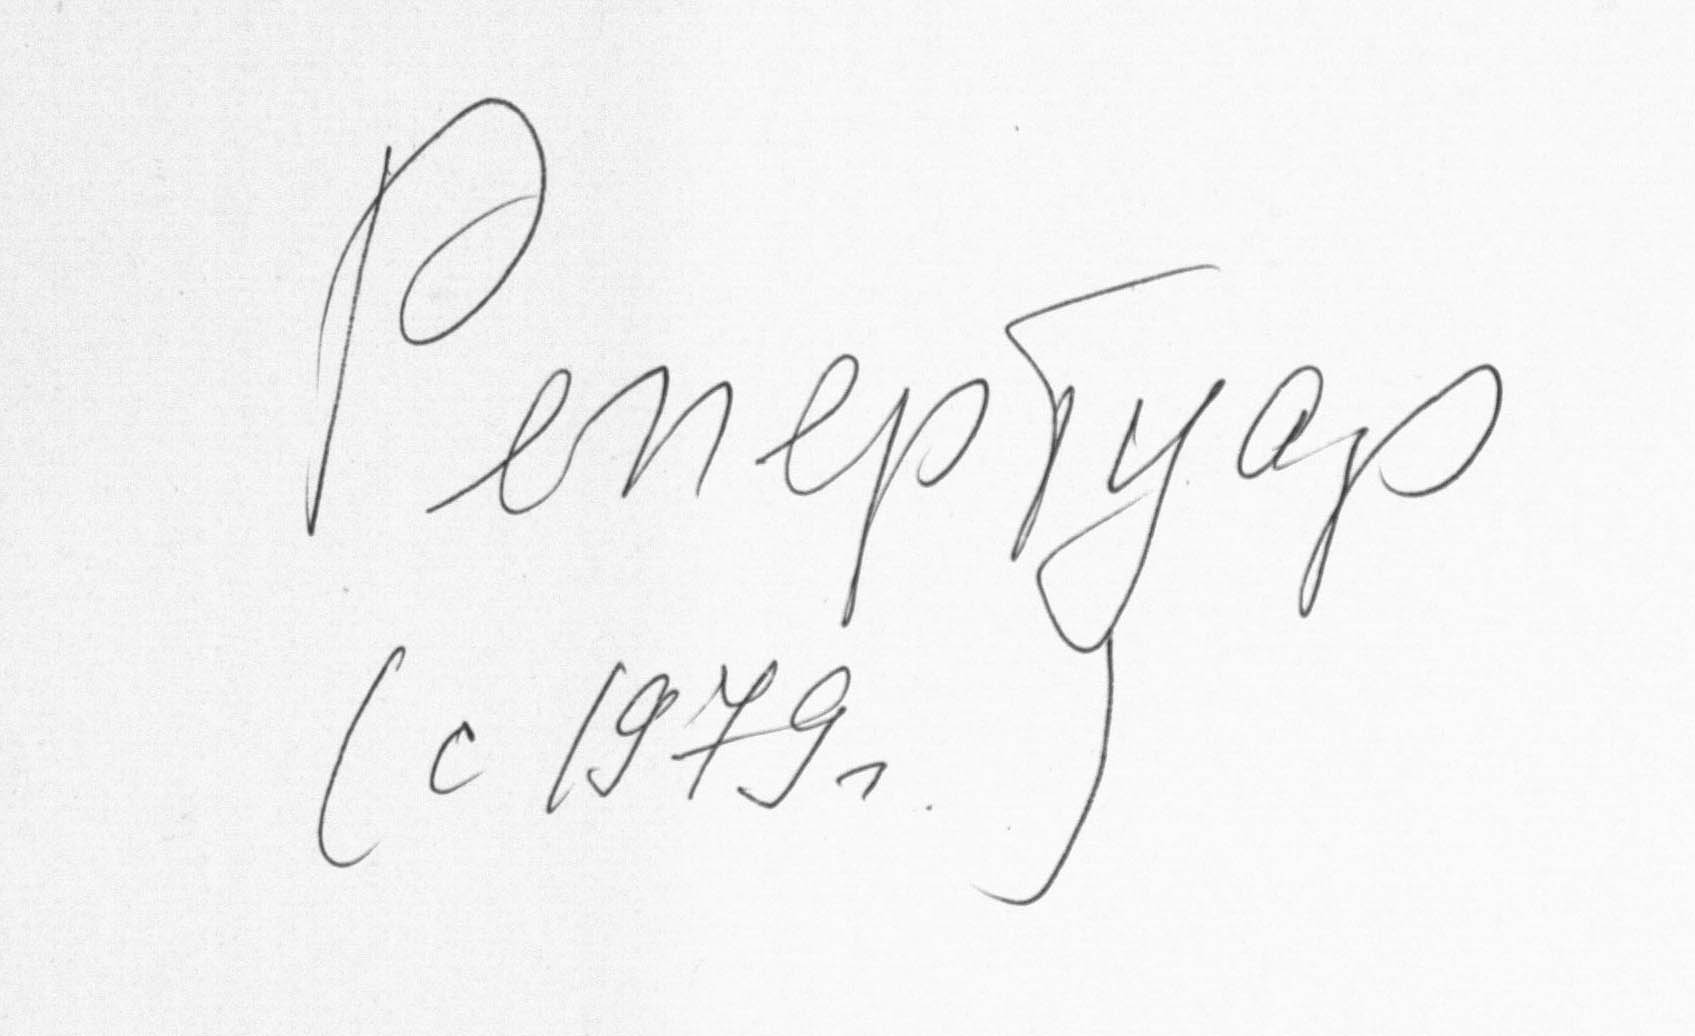 Репертуар
(с 1979г.)